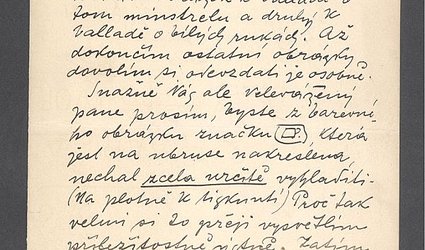 tom minstrelu a druhý k
valladě o bílých rukách. Až
dokončím ostatní obrázky
dovolím si odevzdati je osobně.
Snažně Vás ale velevážený
pane prosím, byste z barevné-
ho obrázku značku která
jest na ubruse nakreslena,
nechal zcela určitě vyhladiti.
(Na plotně k tisknutí) Proč tak
velmi si to přeji vysvětlím
příležitostně ústně. Zatím